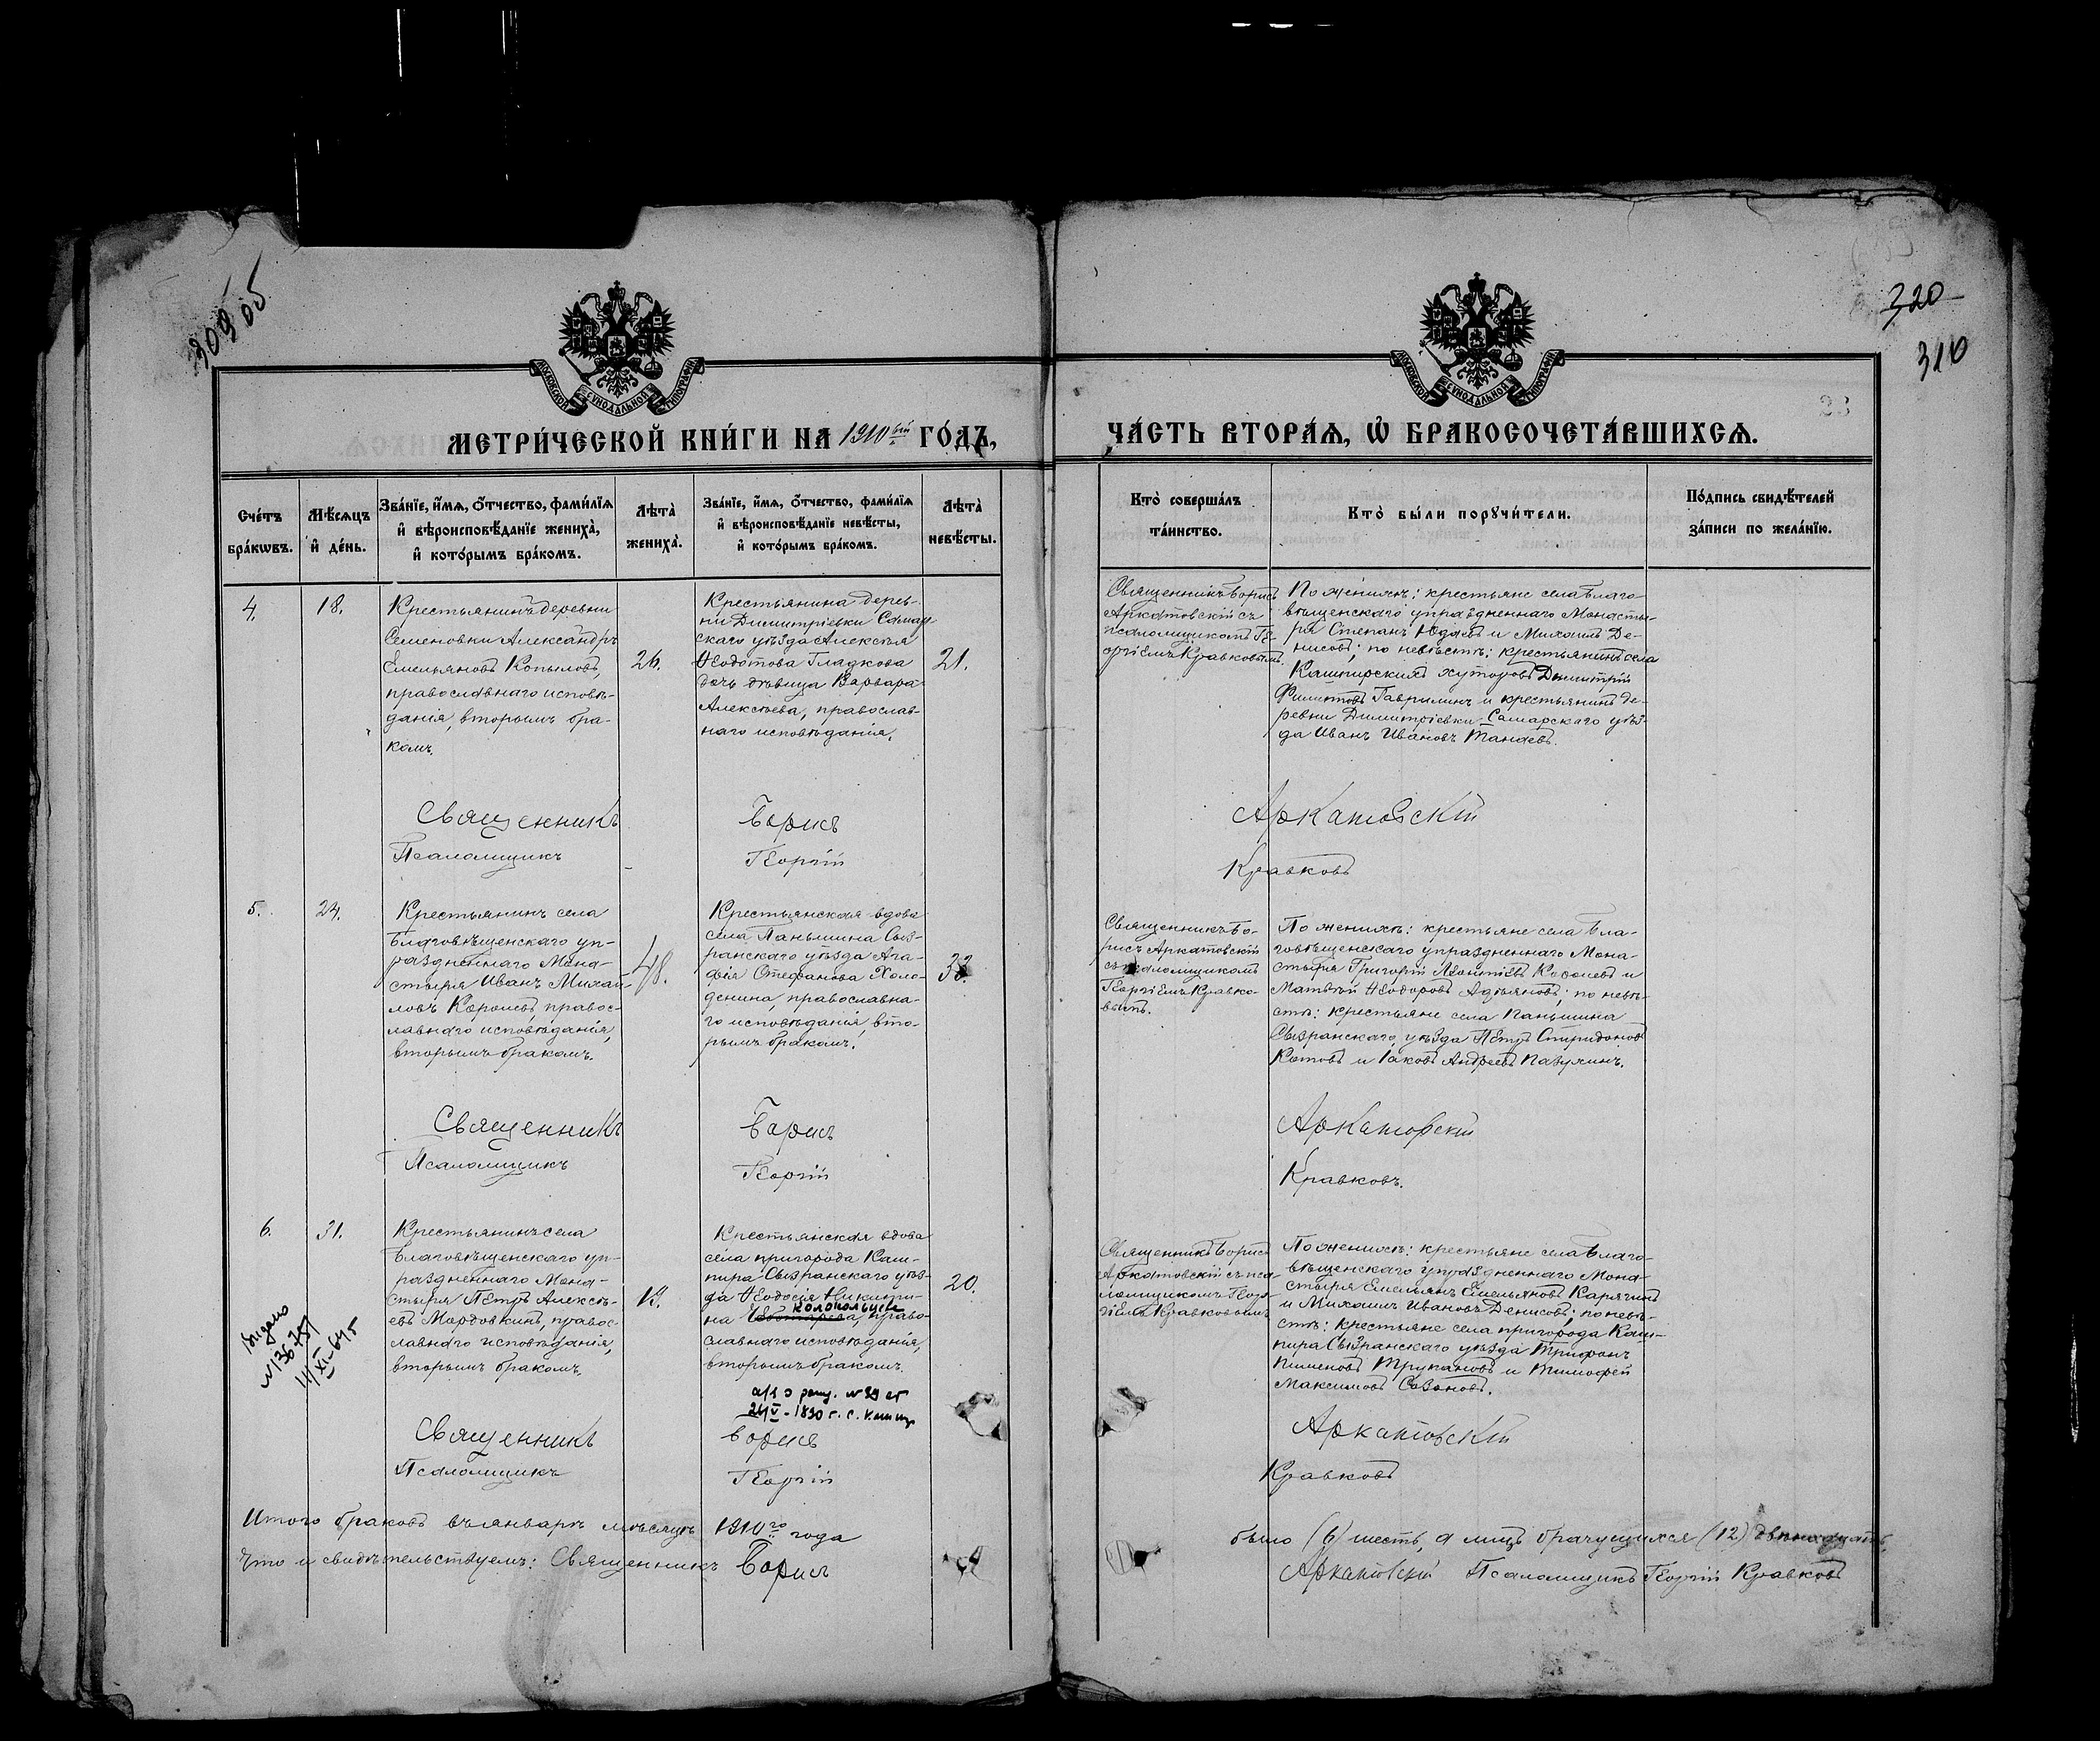 309 об
320
310
МОСКОВСКОЙ СѴНОДАЛЬНОЙ ТИПОГРАФІИ
МОСКОВСКОЙ СѴНОДАЛЬНОЙ ТИПОГРАФІИ
МЕТРИ́ЧЕСКОЙ КНИ́ГИ НА 1910ый ГО́ДЪ,
ЧА́СТЬ ВТОРА́Я, Ѡ БРАКОСОЧЕТА́ВШИХСЯ.
Сче́тъ
бра́кѡвъ.
Мѣ́сяцъ
и҆ де́нь.
Зва́нїе, и҆́мя, ѻ҆́тчество, фами́лїя
и҆ вѣроисповѣ́данїе жениха̀,
и҆ кото́рымъ бра́комъ.
Лѣта̀
жениха̀.
Зва́нїе, и҆́мя, ѻ҆́тчество, фами́лїя
и҆ вѣроисповѣ́данїе невѣ́сты,
и҆ кото́рымъ бра́комъ.
Лѣта̀
невѣ́сты.
Кто̀ соверша́лъ
та́инство.
Кто̀ бы́ли порꙋчи́тели.
По́дпись свидѣ́телей
за́писи по жела́нїю.
4.
18.
Крестьянинъ деревни
Семеновки Александръ
Емельяновъ Копыловъ,
православнаго исповѣ-
данія, вторымъ бра-
комъ.
26.
Крестьянина дерев-
ни Димитріевки Самар
скаго уѣзда Алексѣя
Ѳедотова Гладкова
дочь дѣвица Варвара
Алексѣева, православ-
наго исповѣданія.
21.
Священникъ Борисъ
Аркатовскій съ
псаломщикомъ Ге-
оргіемъ Кравковымъ.
По женихѣ: крестьяне села Благо-
вѣщенскаго упраздненнаго Монасты-
ря Степанъ Юдаевъ и Михаилъ Де-
нисовъ; по невѣстѣ: крестьянинъ села
Кашпирскихъ хуторовъ Димитрій
Филиповъ Гаврилинъ и крестьянинъ де-
ревни Димитріевки Самарскаго уѣз-
да Иванъ Ивановъ Танаевъ.
Священникъ Борисъ Аркатовскій
Псаломщикъ Георгій Кравковъ
5.
24.
Крестьянинъ села
Благовѣщенскаго уп-
раздненнаго Мона-
стыря Иванъ Михаи-
ловъ Королевъ, правос-
лавнаго исповѣданія,
вторымъ бракомъ.
48.
Крестьянская вдова
села Паньшина Сыз-
ранскаго уѣзда Ага-
фія Стефанова Холо-
денина, православна-
го исповѣданія, вто-
рымъ бракомъ.
Священникъ Бо-
рисъ Аркатовскій
съ псаломщикомъ
Георгіемъ Кравко-
вымъ.
По женихѣ: крестьяне села Бла-
говѣщенскаго упраздненнаго Мона-
стыря Григорій Леонтіевъ Королевъ и
Матвѣй Ѳеодоровъ Адѣяновъ; по невѣ-
стѣ: крестьяне села Паньшина
Сызранскаго уѣзда Петръ Спиридоновъ
Котовъ и Іаковъ Андреевъ Пазухинъ.
Священникъ Борисъ Аркатовскій
Псаломщикъ Георгій Кравковъ.
6.
31.
Крестьянинъ села
Благовѣщенскаго уп-
раздненнаго Мона-
стыря Петръ Алексѣ-
евъ Мордовкинъ, правос-
лавнаго исповѣданія,
вторымъ бракомъ.
Крестьянская вдова
села пригорода Каш-
пира Сызранскаго уѣз-
да Ѳеодосія Никити-
колокольцева
на Чеботарева, право-
славнаго исповѣданія,
вторымъ бракомъ.
20.
Выдано
а/з о рожд. № 39 от
24/V-1890 г. с. Кашпир
Священникъ Борисъ
Аркатовскій съ пса-
ломщикомъ Геор-
гіемъ Кравковымъ
По женихѣ: крестьяне села Благо-
вѣщенскаго упраздненнаго Мона-
стыря Емельянъ Емельяновъ Карягинъ
и Михаилъ Ивановъ Денисовъ; по невѣ-
стѣ: крестьяне села пригорода Каш-
пира Сызранскаго уѣзда Трифонъ
Пименовъ Трупановъ и Тимофей
Максимовъ Сазоновъ.
Священникъ Борисъ Аркатовскій
Псаломщикъ Георгій Кравковъ
Итого браковъ въ январѣ мѣсяцѣ 1910го года было (6) шесть, а лицъ брачущихся (12) двѣнадцать,
Что и свидѣтельствуемъ: Священникъ Борисъ Аркатовскій Псаломщикъ Георгій Кравковъ